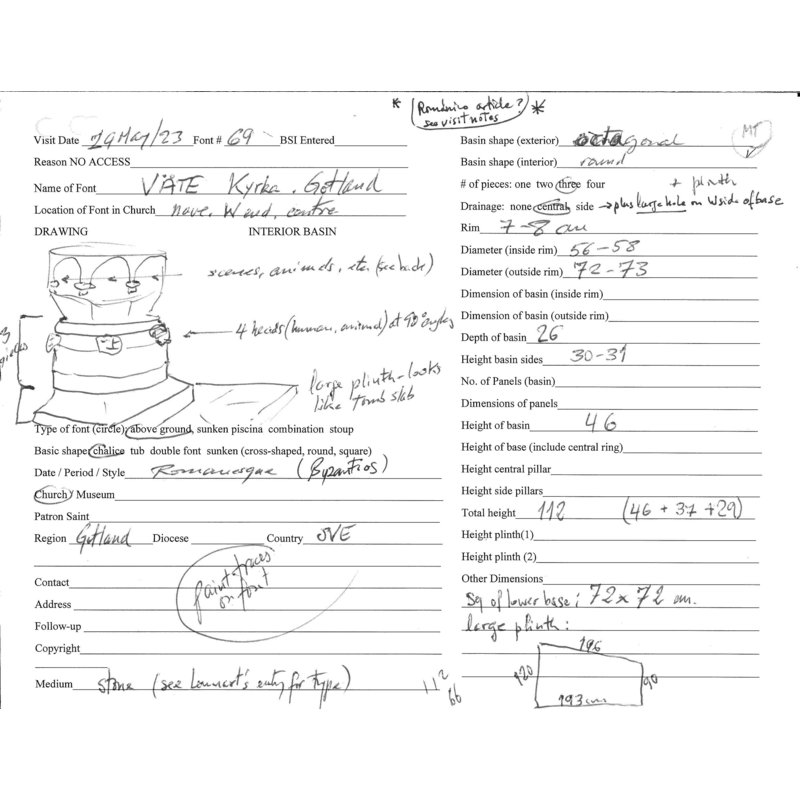 * (Románico article? *
see visit notes
Visit Date 29 May/23 Font # 69 BSI Entered
Reason NO ACCESS
Name of Font VÄTE Kyrka, Gotland
Location of Font in Church nave, W end, centre
DRAWING INTERIOR BASIN
scenes, animals, etc. (see back)
4 heads (human, animal) at 90° angles
3 pieces
large plinth - looks
like tomb slab
Type of font (circle): above ground, sunken piscina combination stoup
Basic shape: chalice tub double font sunken (cross-shaped, round, square)
Date / Period / Style Romanesque (Byzantios)
Church / Museum
Patron Saint
Region Gotland Diocese Country SVE
paint traces
on font
Contact
Address
Follow-up
Copyright
Medium stone (see Lonnart's entry for type)
112
66
MT
Basin shape (exterior) octagonal
Basin shape (interior) round
# of pieces: one two three four + plinth
Drainage: none central side → plus large hole on W side of base
Rim 7-8 cm
Diameter (inside rim) 56-58
Diameter (outside rim) 72-73
Dimension of basin (inside rim)
Dimension of basin (outside rim)
Depth of basin 26
Height basin sides 30-31
No. of Panels (basin)
Dimensions of panels
Height of basin 46
Height of base (include central ring)
Height central pillar
Height side pillars
Total height 112 (46 + 37 + 29)
Height plinth(1)
Height plinth (2)
Other Dimensions
Sq of lower base: 72 x 72 cm.
large plinth:
196
120
90
193 cm